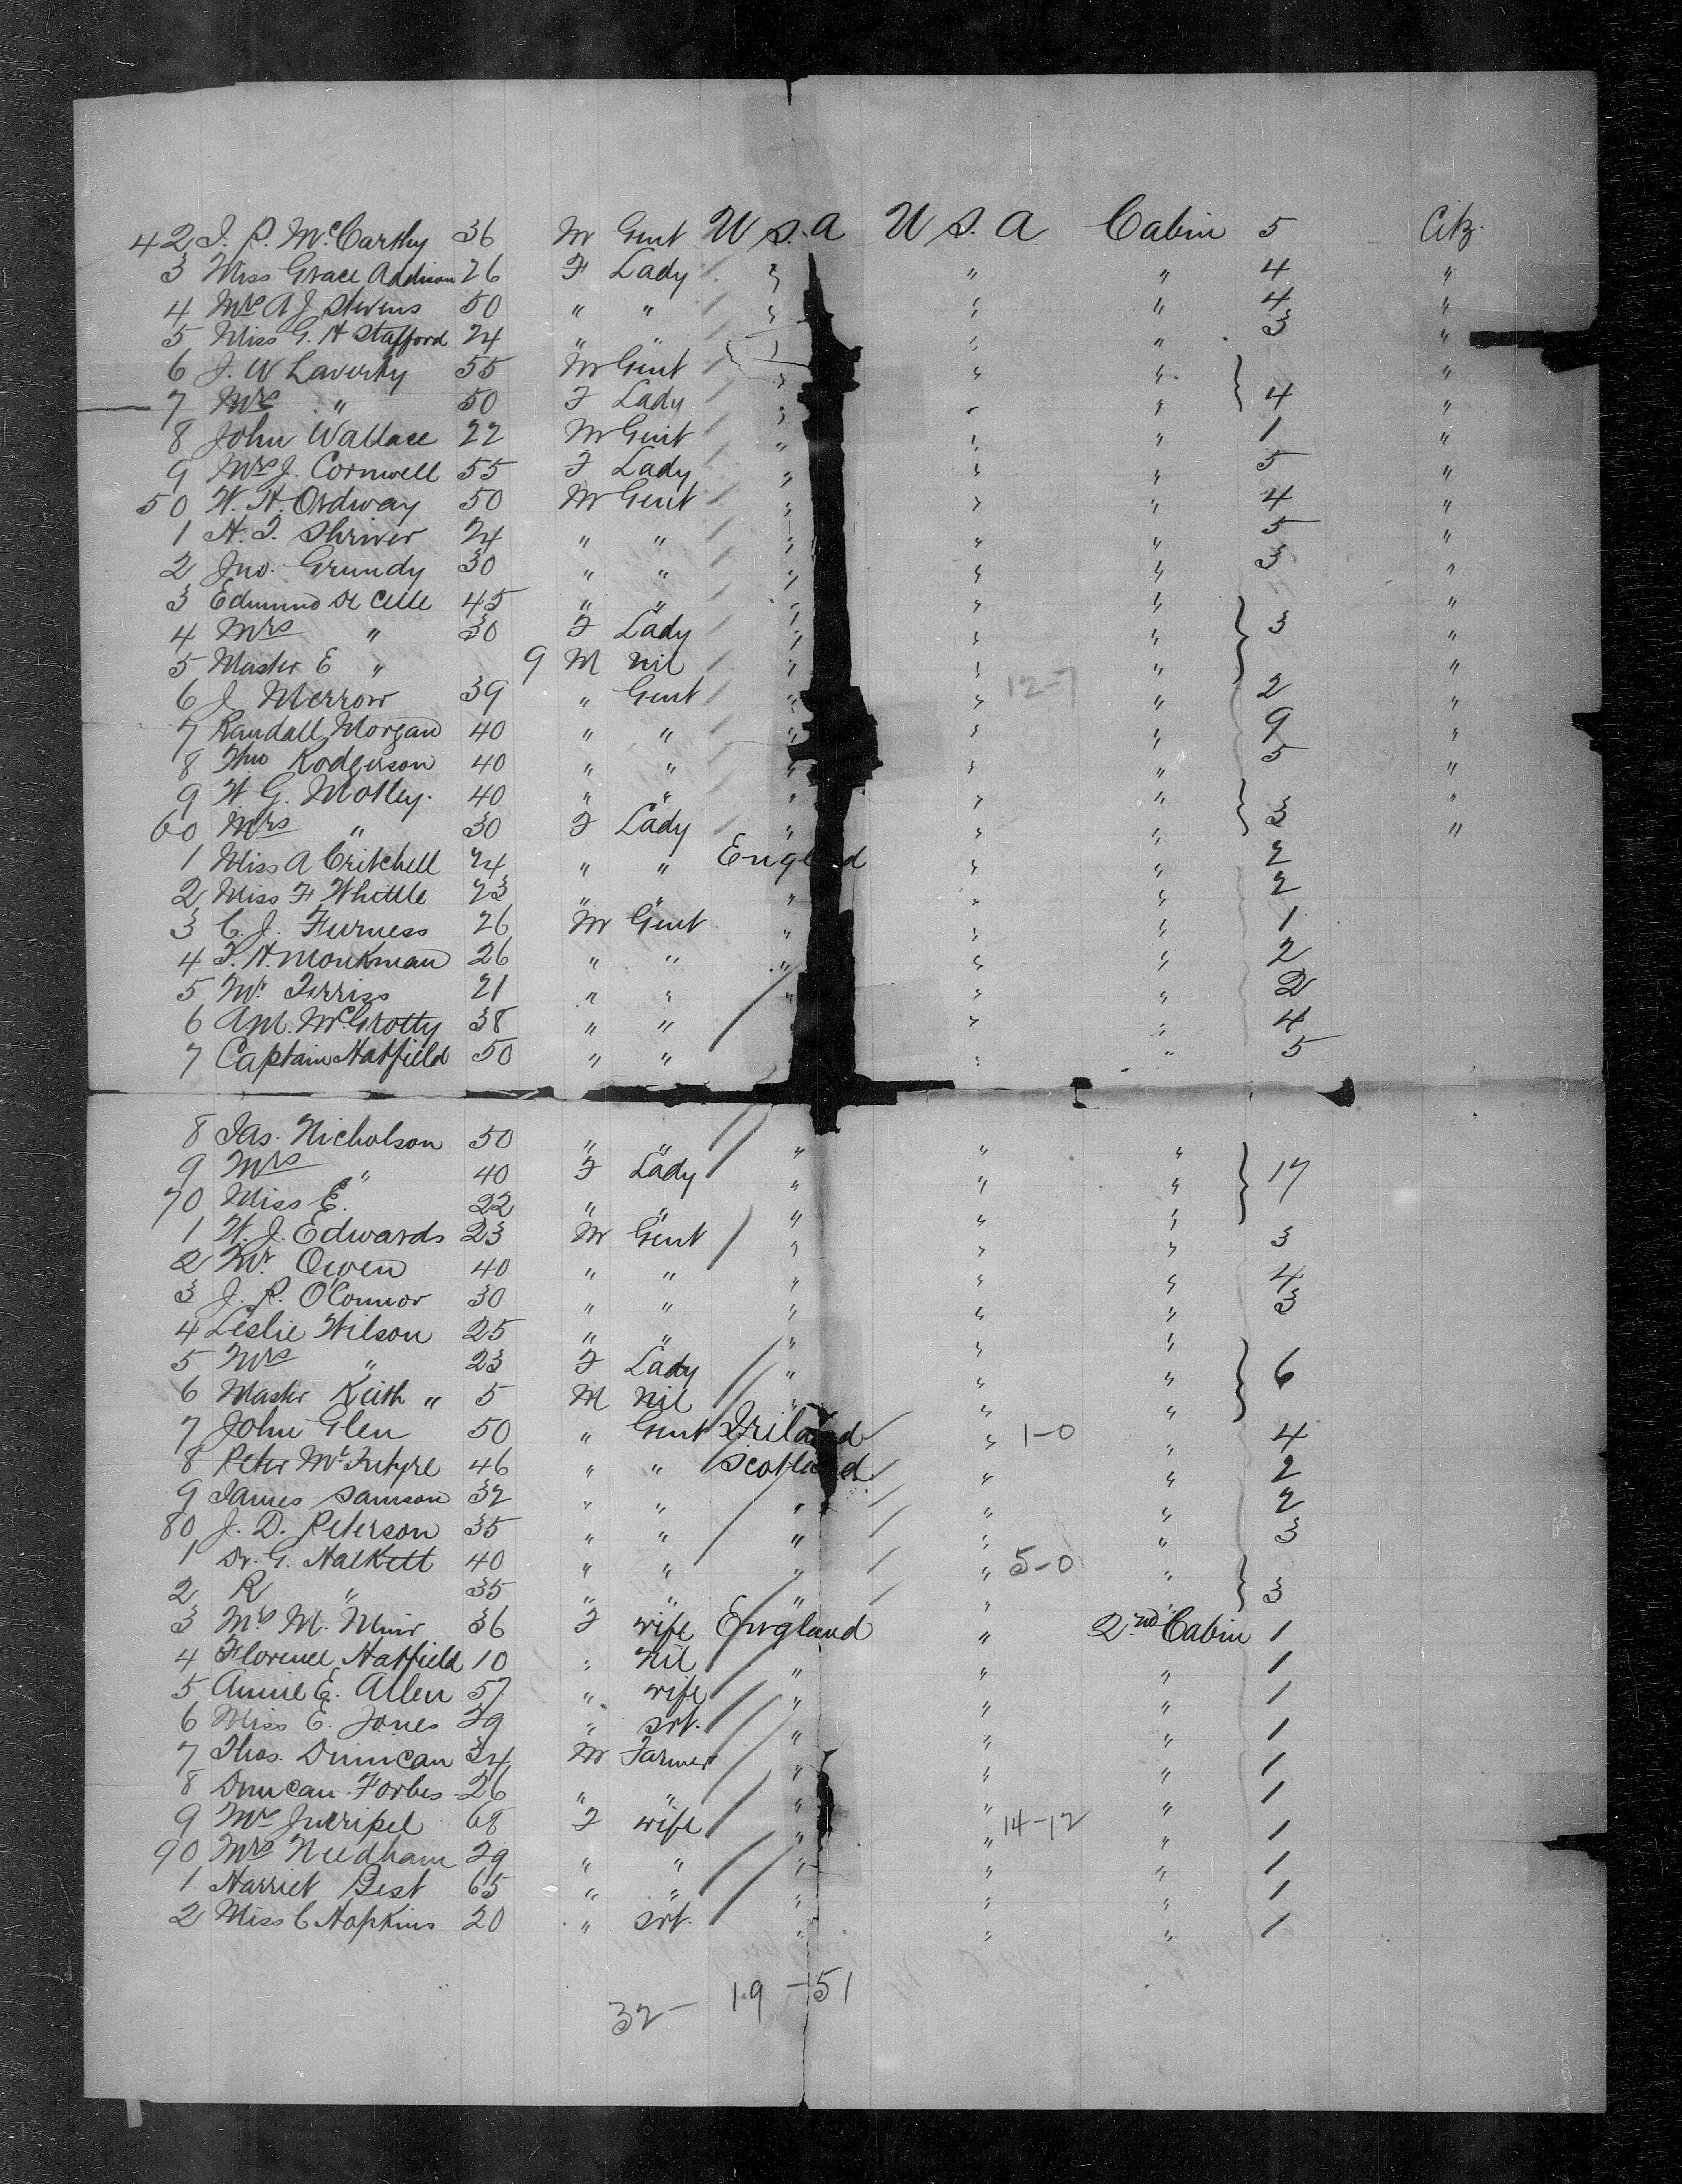 42 J. P. McCarthy 36 M Gent U S. A U S. A Cabin 5 Citz.
3 Miss Grace Addison 26 F Lady " " " 4 "
4 Mrs A J Stevens 50 " " " " " 4 "
5 Miss G. H Stafford 24 " " " " 3 "
6 J. W Laverty 55 M Gent " " " "
7 Mrs " 50 F Lady " " " } 4 "
8 John Wallace 22 M Gent " " " 1 "
9 Mrs J. Cornwell 55 F Lady " " " 5 "
50 W. H. Ordway 50 M Gent " " " 4 "
1 H. T. Shriver 24 " " " " " 5 "
2 Jno. Grundy 30 " " " " " 3 "
3 Edmund De Celle 45 " " " " " "
4 Mrs " 30 F Lady " " " } 3 "
5 Master E " 9 M nil " " " "
6 J Merrow 39 " Gent " " 12-7 " 2 "
7 Randall Morgan 40 " " " " " 9 "
8 Thos Rodgerson 40 " " " " " 5 "
9 W. G. Motley. 40 " " " " " "
60 Mrs " 30 F Lady " " " } 3 "
1 Miss A Critchell 24 " " England " " 2
2 Miss F Whittle 23 " " " " " 2
3 C. J. Furness 26 M Gent " " " 1
4 F. H. Monkman 26 " " " " " 2
5 Mr. Terriss 21 " " " " " 2
6 Ant. McGrotty 38 " " " " 4
7 Captain Hatfield 50 " " " " 5
8 Jas. Nicholson 50 " " " " "
9 Mrs " 40 F Lady " " " } 17
70 Miss E. 22 " " " " "
1 W. J. Edwards 23 M Gent " " " 3
2 Mr. Owen 40 " " " " " 4
3 J. P. O'Connor 30 " " " " " 3
4 Leslie Wilson 25 " " " " "
5 Mrs " 23 F Lady " " " } 6
6 Master Keith " 5 M nil " " "
7 John Glen 50 " Gent Ireland " 1-0 " 4
8 Peter McIntyre 46 " " Scotland " " 2
9 James Samson 32 " " " " " 2
80 J. D. Peterson 35 " " " " " 3
1 Dr. G. Halkett 40 " " " " 5-0 "
2 R " 35 " " " " " } 3
3 Mrs M. Muir 36 F wife England " 2nd Cabin 1
4 Florence Hatfield 10 " Nil " " " 1
5 Annie E. Allen 57 " wife " " " 1
6 Miss E. Jones 29 " svt. " " " 1
7 Thos. Duncan 34 M Farmer " " " 1
8 Duncan Forbes 26 " " " " " 1
9 Mrs 68 F wife " " 14-12 " 1
90 Mrs Needham 29 " " " " " 1
1 Harriet Best 65 " " " " " 1
2 Miss C Hopkins 20 " svt. " " " 1
32- 19 - 51